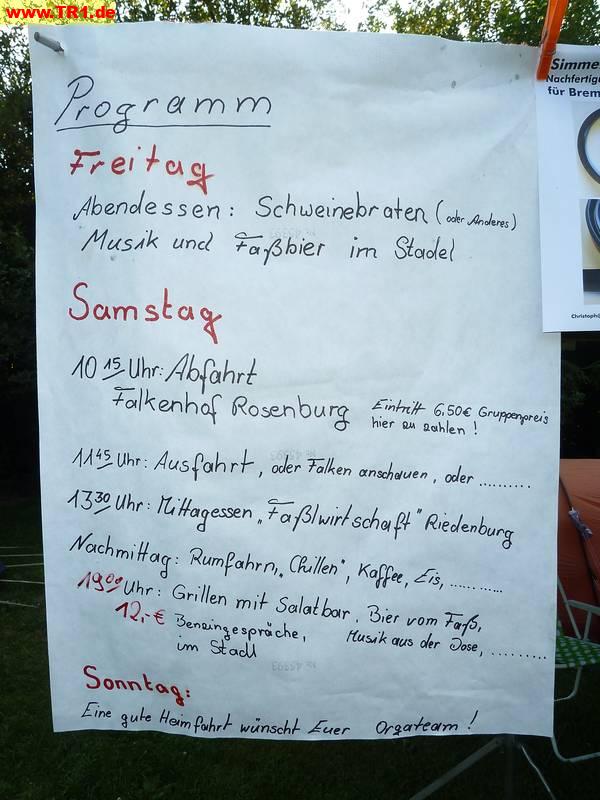 www.TR1.de
Programm
Freitag
Abendessen: Schweinebraten (oder Anderes)
Musik und Faßbier im Stadel
Samstag
10 15 Uhr: Abfahrt
Falkenhof Rosenburg Eintritt 6,50€ Gruppenpreis
hier zu zahlen!
11 45 Uhr: Ausfahrt, oder Falken anschauen, oder .........
13 30 Uhr: Mittagessen „Faßlwirtschaft" Riedenburg
Nachmittag: Rumfahrn, „Chillen", Kaffee, Eis, ...........
19 00 Uhr: Grillen mit Salatbar, Bier vom Faß,
12,-€ Benzingespräche, Musik aus der Dose, ..........
im Stadl
Sonntag:
Eine gute Heimfahrt wünscht Euer Orgateam!
Simme
Nachfertigu
für Brem
Christoph@